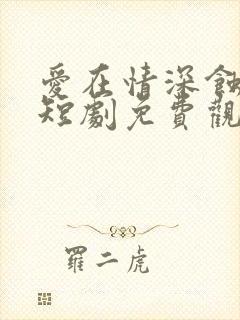 愛在情深蝕
短劇免費觀
羅二虎